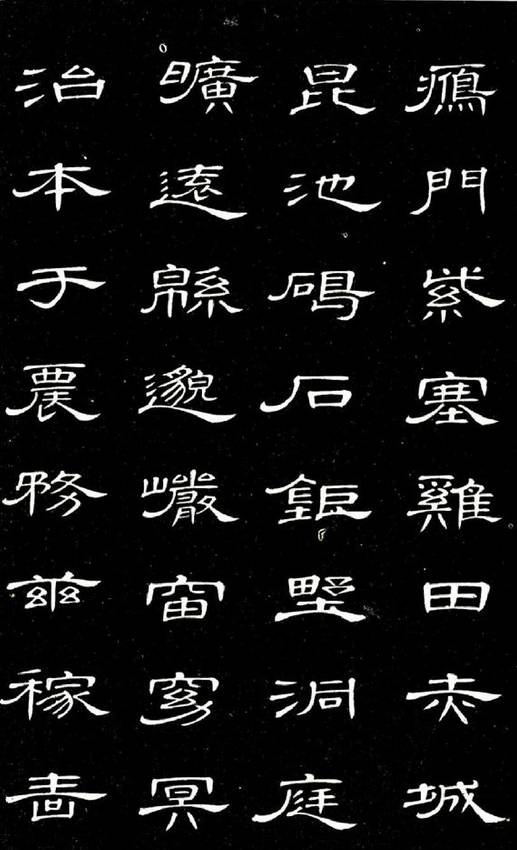 鴈門紫塞雞田赤城
昆池碣石鉅野洞庭
曠遠緜邈巖岫窈冥
治本于農務茲稼嗇